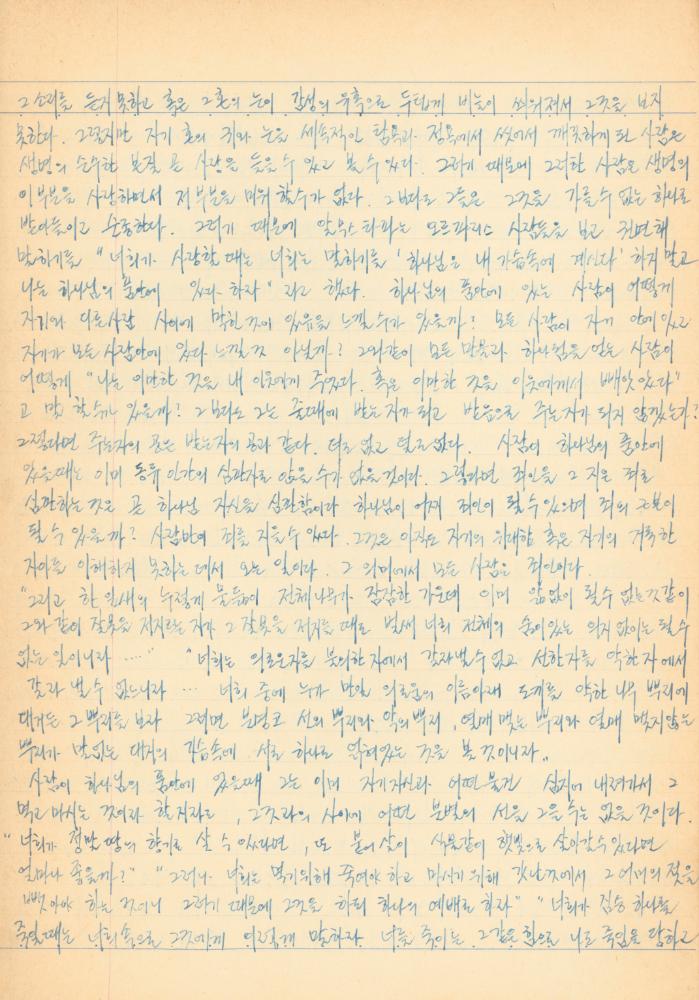 그 소리를 듣지 못하고 혹은 그 혼의 눈이 감성의 유혹으로 두텁게 비늘이 씌워져서 그것을 보지
못한다. 그렇지만 자기 혼의 귀와 눈을 세속적인 탐욕과 정욕에서 씻어서 깨끗하게 된 사람은
생명의 순수한 본질 곧 사랑을 들을 수 있고 볼 수 있다. 그러기 때문에 그러한 사람은 생명의
이 부분을 사랑하면서 저 부분을 미워 할 수가 없다. 그보다도 그들은 그것을 가를 수 없는 하나로
받아들이고 순종한다. 그러기 때문에 알무스타파는 오르팔리스 사람들을 보고 권면해
말하기를 "너희가 사랑할 때는 너희는 말하기를 '하나님은 내 가슴속에 계시다' 하지 말고
나는 하나님의 품안에 있다 하라" 라고 했다. 하나님의 품안에 있는 사람이 어떻게
자기와 다른 사람 사이에 막힌 것이 있음을 느낄 수가 있을까? 모든 사람이 자기 안에 있고
자기가 모든 사람 안에 있다 느낄 것 아닐까? 그와 같이 모든 만물과 하나됨을 얻는 사람이
어떻게 "나는 이만한 것을 내 이웃에게 주었다. 혹은 이만한 것을 이웃에게서 빼앗았다"
고 말 할 수가 있을까? 그보다도 그는 줄 때에 받는 자가 되고 받음으로 주는 자가 되지 않겠는가?
그렇다면 주는 자의 공은 받는 자의 공과 같다. 더도 없고 덜도 없다. 사람이 하나님의 품안에
있을 때는 이미 동류 인간의 심판자로 앉을 수가 없을 것이다. 그렇다면 죄인을 그 지은 죄로
심판하는 것은 곧 하나님 자신을 심판함이다 하나님이 어찌 죄인이 될 수 있으며 죄의 근본이
될 수 있을까? 사람만이 죄를 지을 수 있다. 그것은 아직도 자기의 위대함 혹은 자기의 거룩한
자아를 이해하지 못하는데서 오는 일이다. 그 의미에서 모든 사람은 죄인이다.
"그리고 한 잎새의 누렇게 물듦에 전체 나무가 잠잠한 가운데 이미 앎 없이 될 수 없는 것같이
그와 같이 잘못을 저지르는 자가 그 잘못을 저지를 때도 벌써 너희 전체의 숨어있는 의지 없이는 될 수
없는 일이니라 ······" "너희는 의로운자를 불의한 자에서 갈라낼 수 없고 선한 자를 악한 자에서
갈라 낼 수 없느니라 ··· 너희 중에 누가 만일 의로움의 이름아래 도끼를 악한 나무 뿌리에
대거든 그 뿌리를 보라 그러면 분명코 선의 뿌리와 악의 뿌리, 열매 맺는 뿌리와 열매 맺지 않는
뿌리가 말없는 대지의 가슴속에 서로 하나로 얽혀있는 것을 볼 것이니라"
사람이 하나님의 품안에 있을 때 그는 이미 자기 자신과 어떤 물건 심지어 내려가서 그
먹고 마시는 것이라 할지라도, 그것과의 사이에 어떤 분별의 선을 그을 수는 없을 것이다.
"너희가 정말 땅의 향기로 살 수 있다면, 또 붙어살이 식물같이 햇빛으로 살아갈 수 있다면
얼마나 좋을까?" "그러나 너희는 먹기 위해 죽여야 하고 마시기 위해 갓난 것에서 그 어미의 젖을
빼앗아야 하는 것이니 그러기 때문에 그것을 하되 하나의 예배로 하라" "너희가 짐승 하나를
죽일 때는 너희 속으로 그것에게 이렇게 말하라 너를 죽이는 그 같은 힘으로 나도 죽임을 당하고